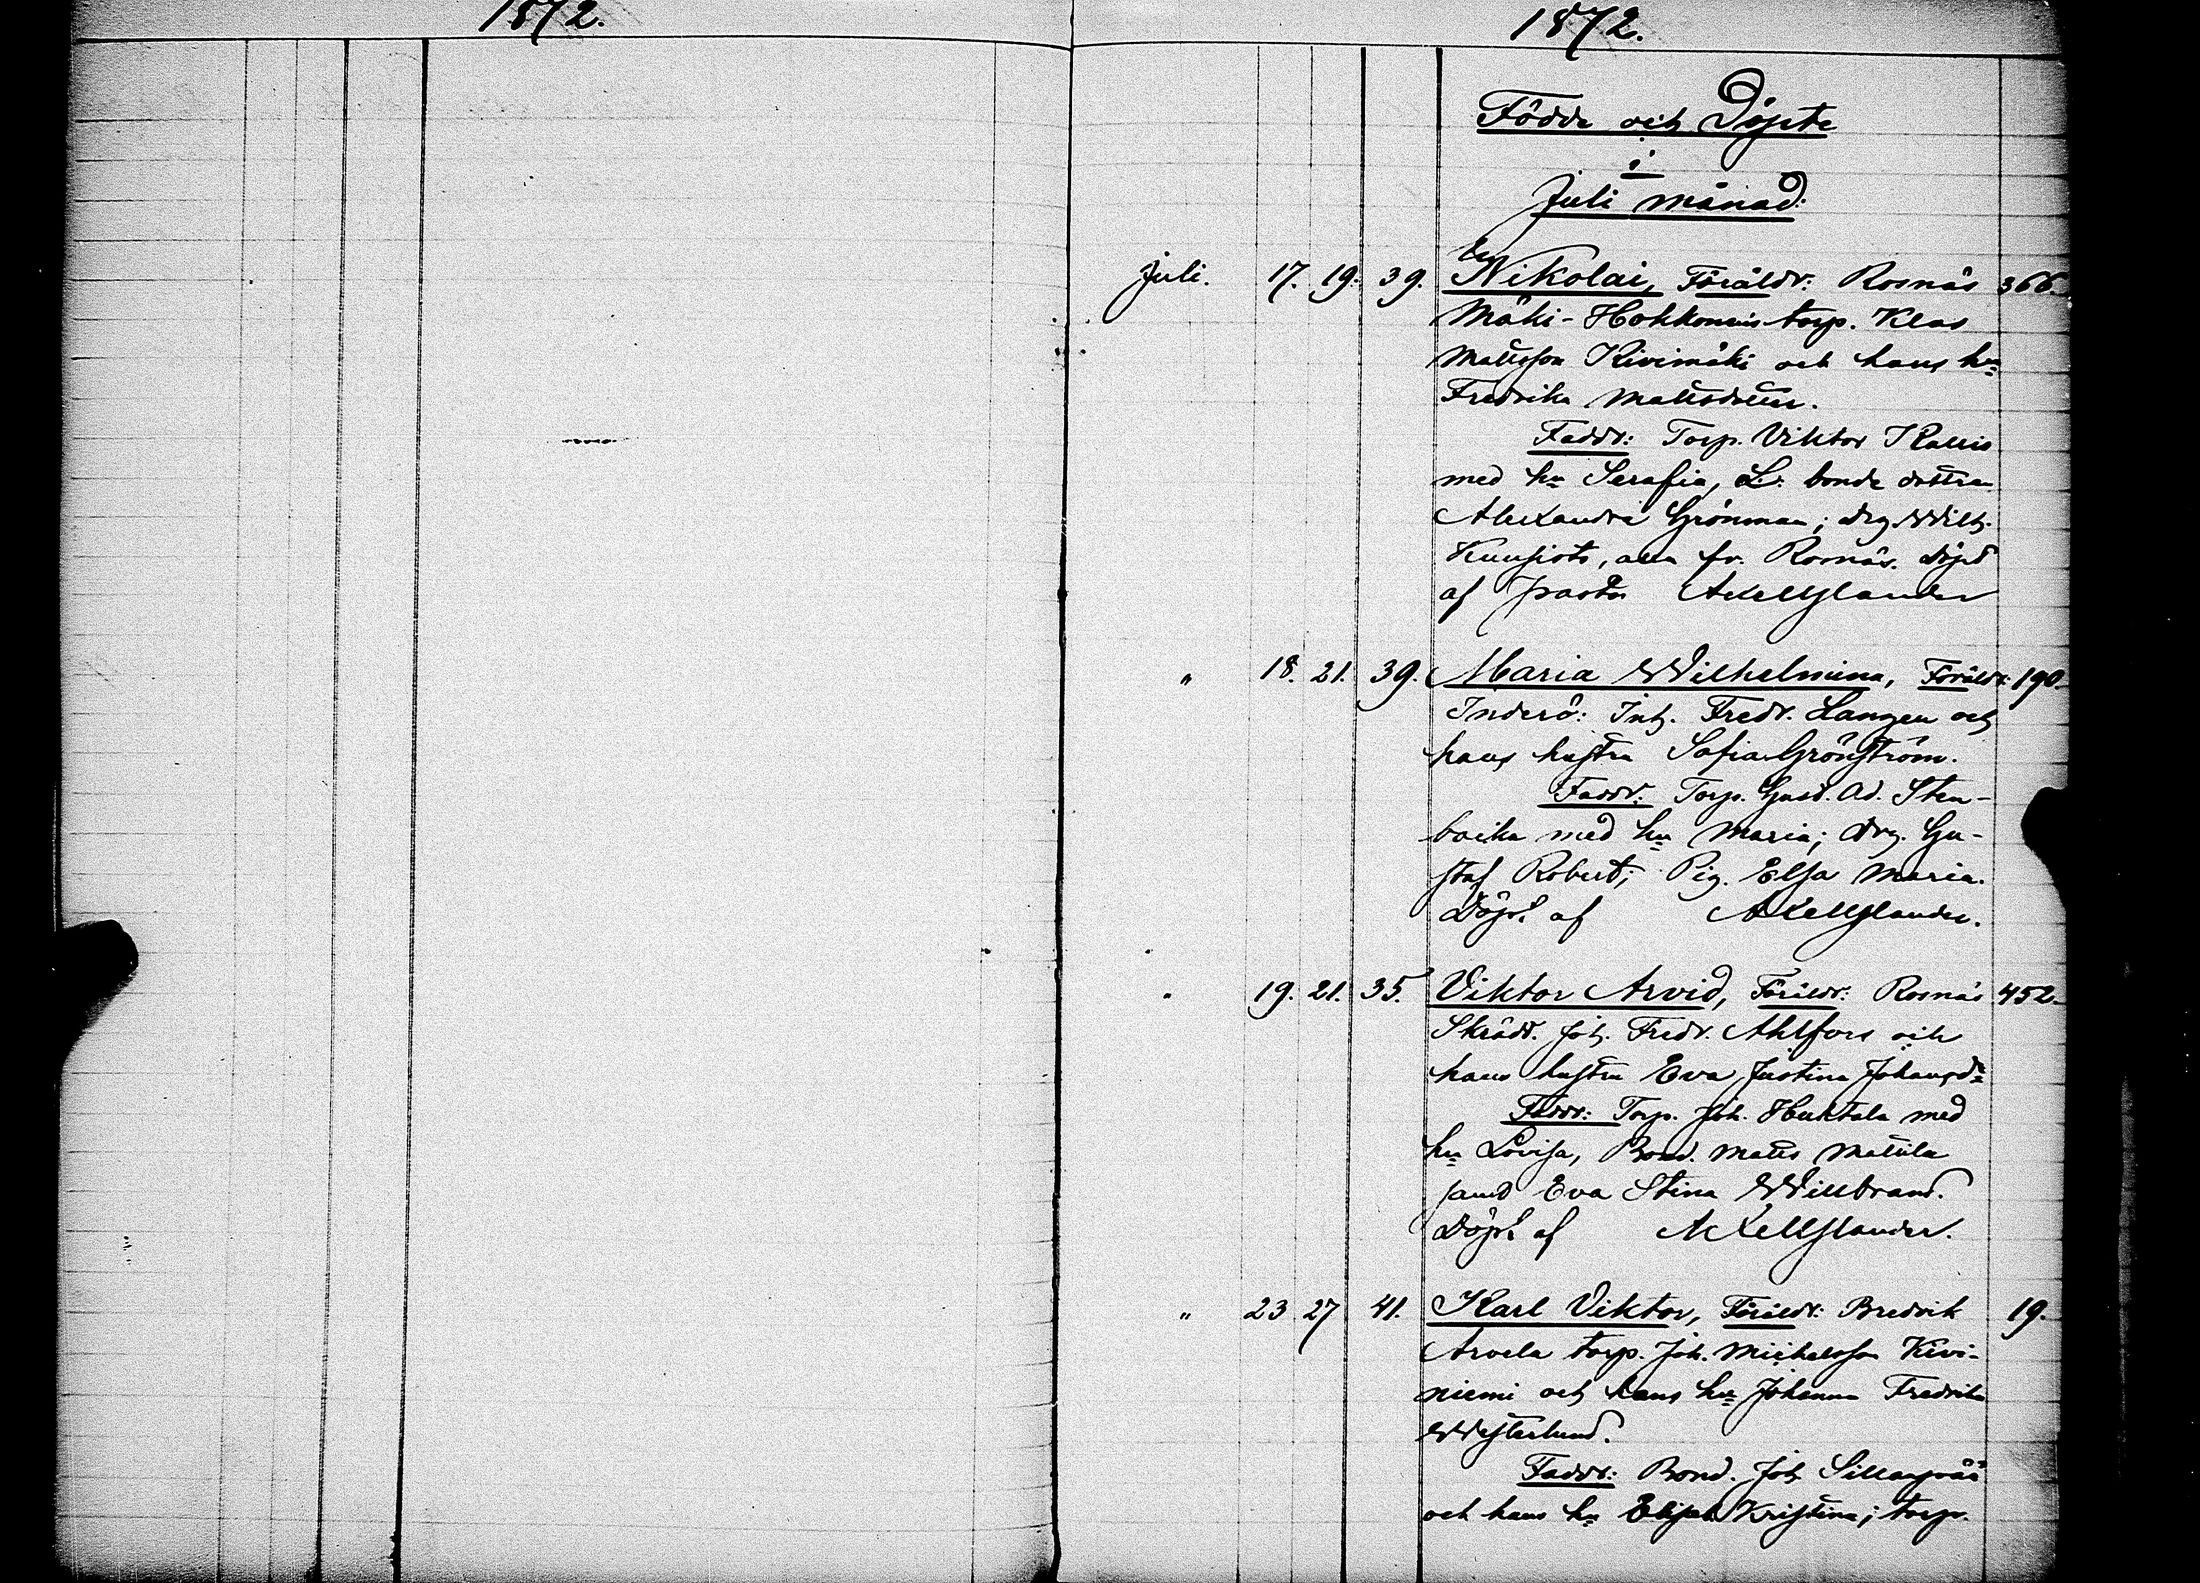 1872.
1872.
Födde och Döpte
i
Juli månad.
Juli. 17. 19. 39. Nikolai, Föräldr: Rosnäs 366.
Mäki-Hokkoneus torp. Klas
Mattsson Kivimäki och hans hu
Fredrika Mattsdotter.
Faddr: Torp. Viktor
med hu Serafia, L: bonde dottren
Alexandra Grönman; drg. Wilh.
Kuusisto, alla fr. Rosnäs. Döpt
af pastor Axellglander
" 18. 21. 39. Maria Wilhelmina, Föräldr: 190.
Inderö: Inh. Fredr. Langen och
hans hustru Sofia Grönström.
Faddr: Torp. Gust. Ad. Sten-
backa med hu Maria; drg. Gu-
staf Robert; Pig. Elsa Maria.
Döpt af Axellglander.
" 19. 21. 35. Viktor Arvid, Föräldr: Rosnäs 452.
Skrädd. Joh. Fredr. Ahlfors och
hans hustru Eva Justina Johansdr
Faddr: Torp. Joh. Huktala med
hu Lovisa, Bond. Matts Mattila
samt Eva Stina Willbrand.
Döpt af Axellglander.
" 23 27 41. Karl Viktor, Föräldr: Bredvik 19.
Arvela torp. Joh. Michelsson Kivi-
niemi och hans hu Johanna Fredrika
Westerlund.
Faddr: Bond. Joh.
och hans hu Elisab. Kristina; torp.